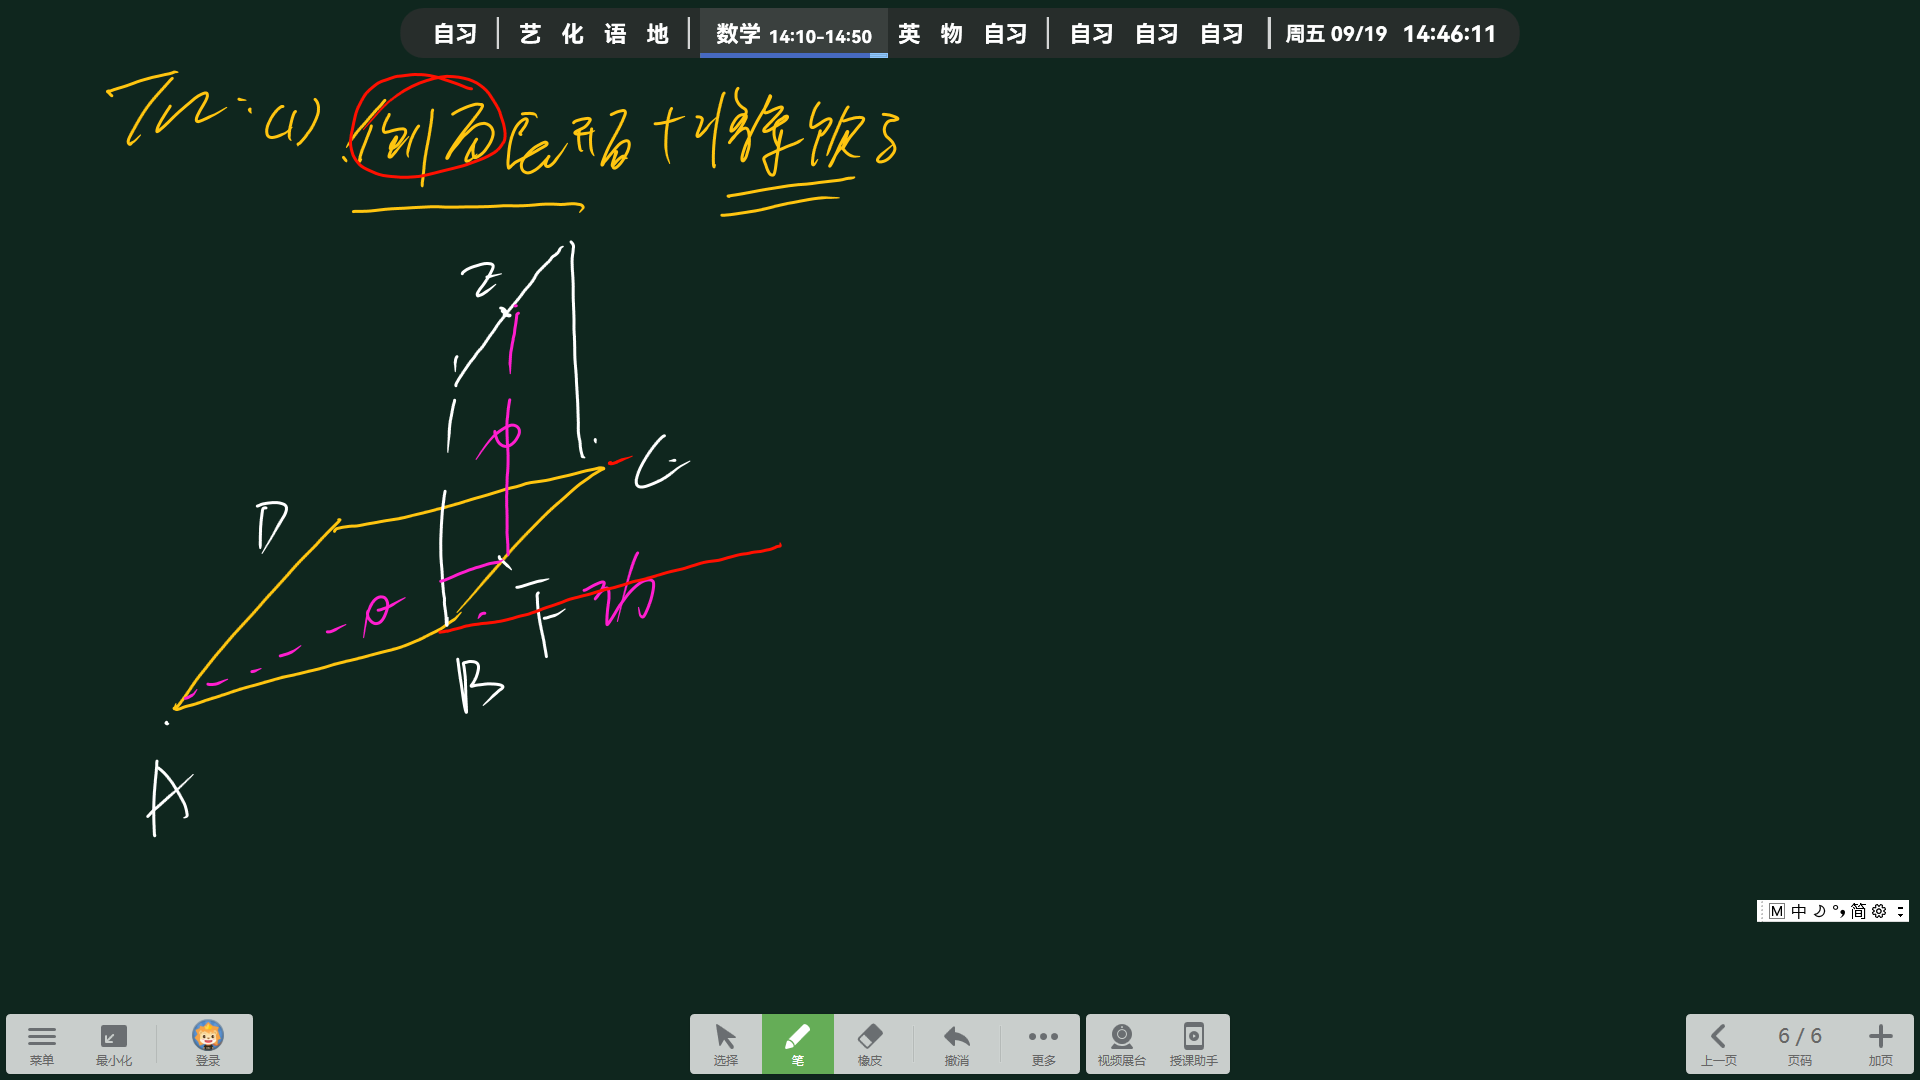 自习 艺 化 语 地 数学 14:10-14:50 英 物 自习 自习 自习 自习 周五 09/19 14:46:11
(1) 侧面展开图+将军饮马
E
P
C
D
F
Q
B
A
M 中 简
菜单 最小化 登录 选择 笔 橡皮 撤消 更多 视频展台 授课助手 上一页 6 / 6 页码 加页